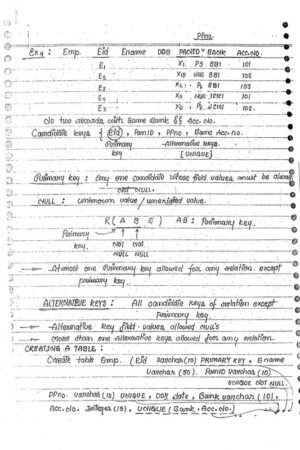 PPno.
Ex 4 : Emp. Eid Ename DOB PANID BANK ACC.NO.
E₁ X₁ P3 SBI 101
E₂ X₁₀ NULL SBI 102
SBI 103
X₃ NULL ICICI 101
X₅ ICICI 102
No two records with same Bank && Acc. no.
Candidate keys { Eid , PanID , PPno , Bank Acc. no.
Primary key Alternative keys
[UNIQUE]
Primary key : Any one candidate whose field values must be also
NOT NULL.
NULL : unknown value / unexisted value.
R ( A B C ) AB : Primary key.
Primary key. NOT NULL NOT NULL
Atmost one Primary key allowed for any relation. except
primary key.
ALTERNATIVE KEYS : All candidate keys of relation except
primary key.
Alternative key field - values allowed null's
More than one Alternative keys allowed for any relation.
CREATING A TABLE :
Create table Emp. ( Eid varchar(10) PRIMARY KEY , Ename
Varchar (30). PanID Varchar (10)
UNIQUE NOT NULL.
PPno. Varchar (10) UNIQUE , DOB date , Bank Varchar (10) ,
Acc. No. Integer (15) , UNIQUE ( Bank , Acc. no. )